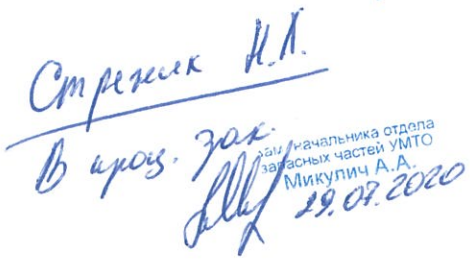 Стрежик Н.П.
В проц. зак.
Зам. начальника отдела
запасных частей УМТО
Микулич А.А.
29.07.2020